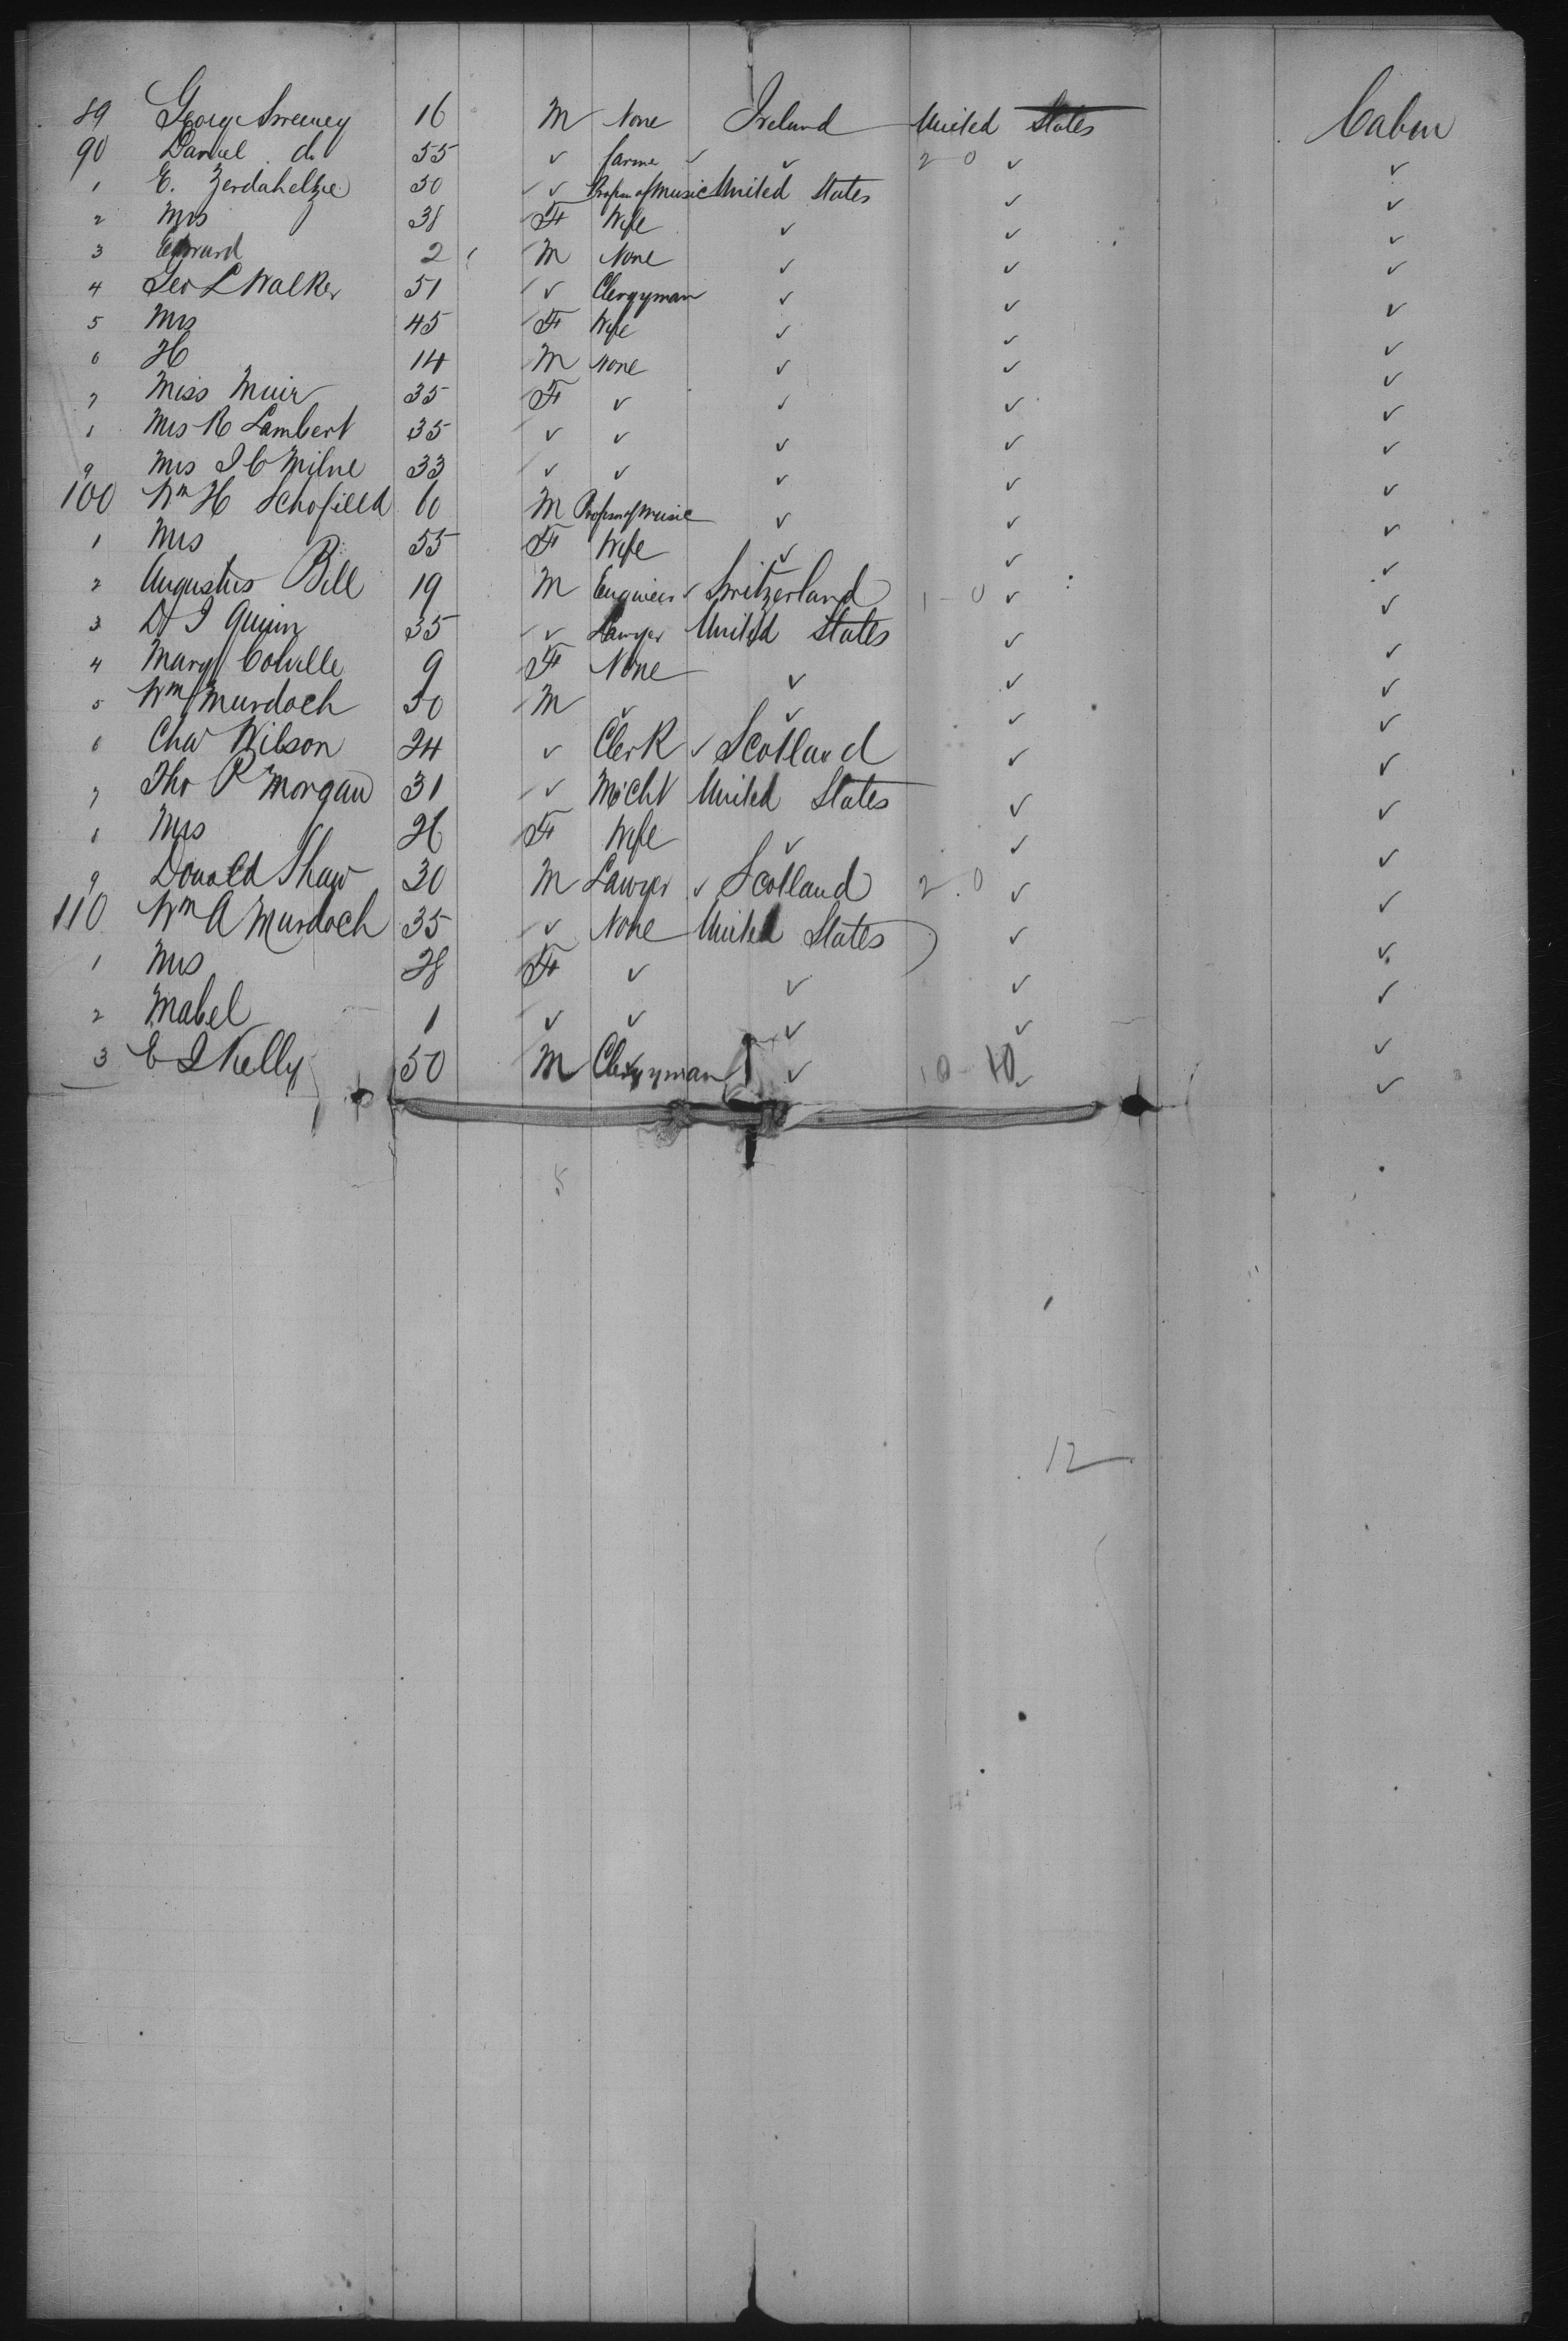 89 George Sweeney 16 M None Ireland United States Cabin
90 Daniel do 55 ✓ farmer ✓ ✓ 2 0 ✓ ✓
1 E. Zerdahelzie 50 ✓ Profsr of Music United States ✓ ✓
2 Mrs 38 F Wife ✓ ✓ ✓
3 Edward 2 M None ✓ ✓ ✓
4 Geo L Walker 51 ✓ Clergyman ✓ ✓ ✓
5 Mrs 45 F Wife ✓ ✓ ✓
6 H 14 M None ✓ ✓ ✓
7 Miss Muir 35 F ✓ ✓ ✓ ✓
8 Mrs R Lambert 35 ✓ ✓ ✓ ✓ ✓
9 Mrs J C Milne 33 ✓ ✓ ✓ ✓ ✓
100 Wm H Schofield 60 M Profsr of Music ✓ ✓ ✓
1 Mrs 55 F Wife ✓ ✓ ✓
2 Augustus Bill 19 M Engineer ✓ Switzerland 1 - 0 ✓ ✓
3 D J Quinn 35 ✓ Lawyer United States ✓ ✓
4 Mary Colville 9 F None ✓ ✓ ✓
5 Wm Murdoch 50 M ✓ ✓ ✓ ✓
6 Chas Wilson 24 ✓ Clerk ✓ Scotland ✓ ✓
7 Tho R Morgan 31 ✓ Mcht United States ✓ ✓
8 Mrs 26 F Wife ✓ ✓ ✓
9 Donald Shaw 30 M Lawyer ✓ Scotland 2.0 ✓ ✓
110 Wm A Murdoch 35 ✓ None United States ✓ ✓
1 Mrs 28 F ✓ ✓ ✓ ✓
2 Mabel 1 ✓ ✓ ✓ ✓ ✓
3 E J Kelly 50 M Clergyman ✓ 10 - 10 ✓ ✓
12